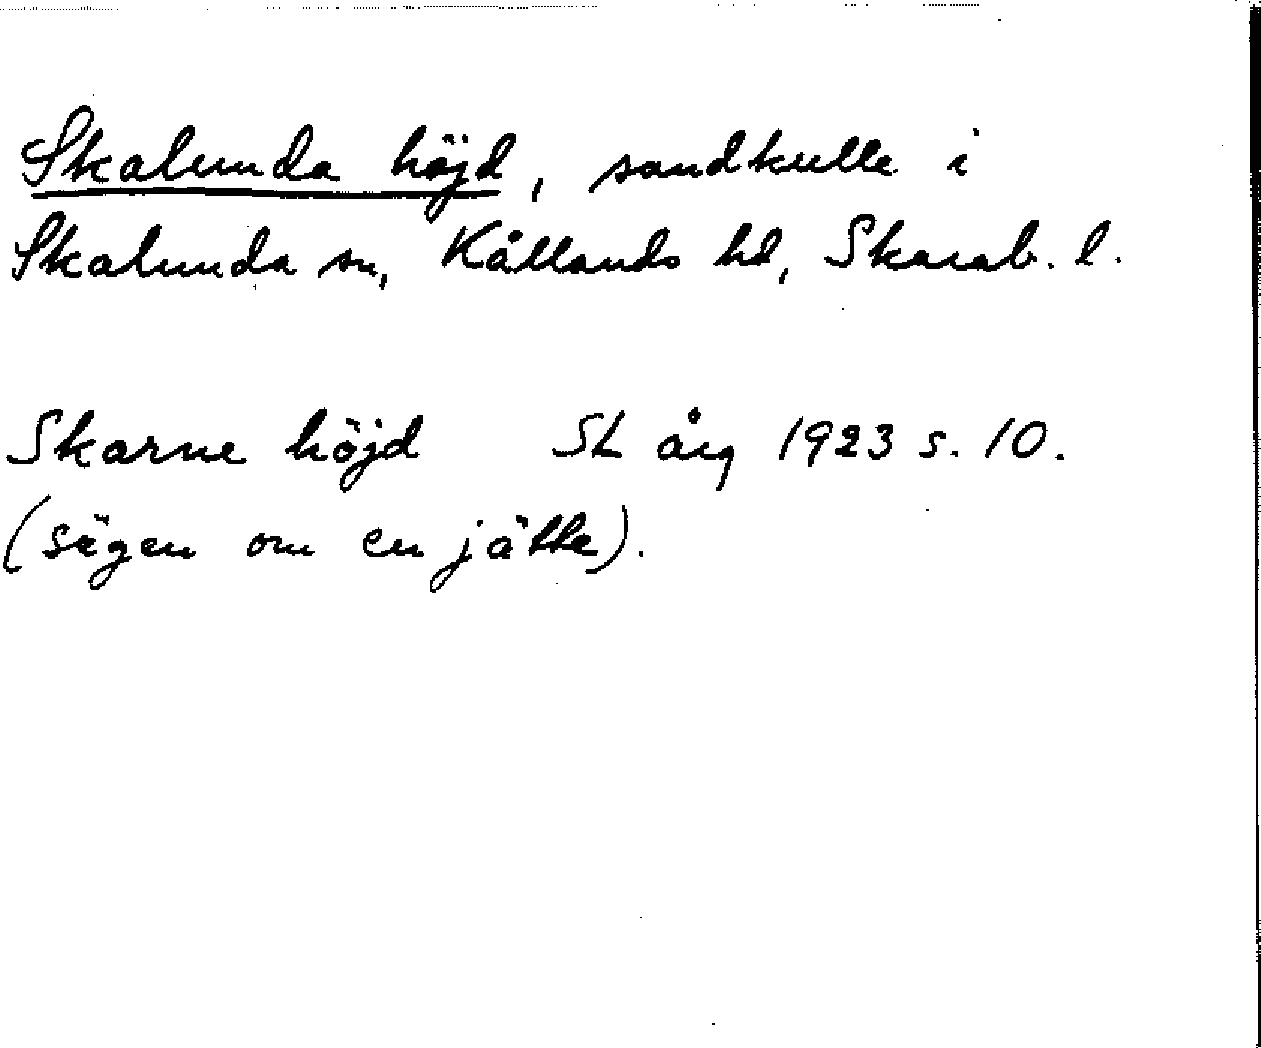 Skalunda höjd, sandkulle i
Skalunda sn, Kållands hd, Skarab. l.
Skarne höjd SL årg 1923 s. 10.
(sägen om en jätte).